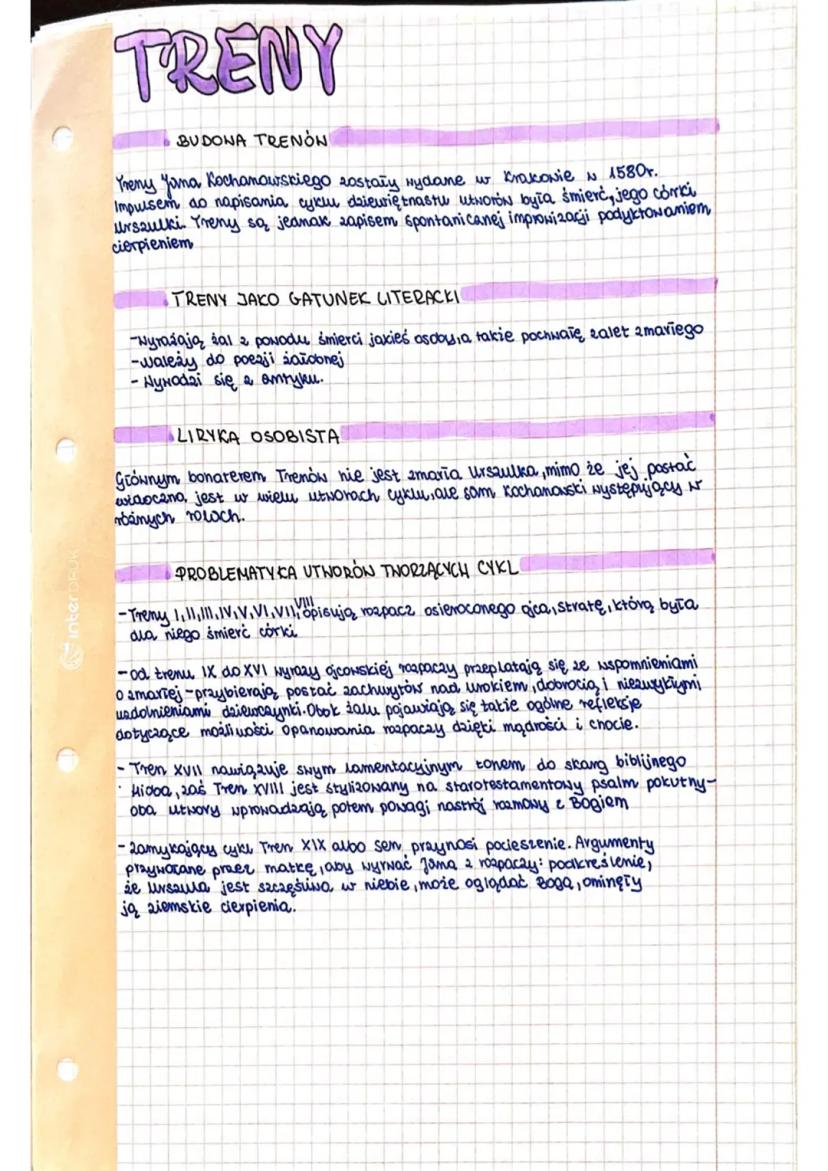 TRENY
BUDOWA TRENÓW
Treny Jana Kochanowskiego zostały wydane w Krakowie w 1580r.
Impulsem do napisania cyklu dziewiętnastu utworów była śmierć, jego córki
Urszulki. Treny są jednak zapisem spontanicznej improwizacji podyktowaniem
cierpieniem
TRENY JAKO GATUNEK LITERACKI
-Wyrażają żal z powodu śmierci jakieś osoby, a także pochwałę zalet zmarłego
-należy do poezji żałobnej
- Wywodzi się z antyku.
LIRYKA OSOBISTA
Głównym bohaterem Trenów nie jest zmarła Urszulka, mimo że jej postać
widoczna, jest w wielu utworach cyklu, ale sam Kochanowski występujący w
różnych rolach.
PROBLEMATYKA UTWORÓW TWORZĄCYCH CYKL
-Treny I, II, III, IV, V, VI, VII, VIII opisują rozpacz osieroconego ojca, stratę, którą była
dla niego śmierć córki
-od trenu IX do XVI wyrazy ojcowskiej rozpaczy przeplatają się ze wspomnieniami
o zmarłej -przybierają postać zachwytów nad urokiem, dobrocią i niezwykłymi
uzdolnieniami dziewczynki. Obok żalu pojawiają się także ogólne refleksje
dotyczące możliwości opanowania rozpaczy dzięki mądrości i cnocie.
- Tren XVII nawiązuje swym lamentacyjnym tonem do skarg biblijnego
Hioba, zaś Tren XVIII jest stylizowany na starotestamentowy psalm pokutny-
oba utwory wprowadzają potem powagi nastrój rozmowy z Bogiem
- Zamykający cykl Tren XIX albo sen przynosi pocieszenie. Argumenty
przywołane przez matkę, aby wyrwać Jana z rozpaczy: podkreślenie,
że Urszula jest szczęśliwa w niebie, może oglądać Boga, ominęły
ją ziemskie cierpienia.
interDRUK